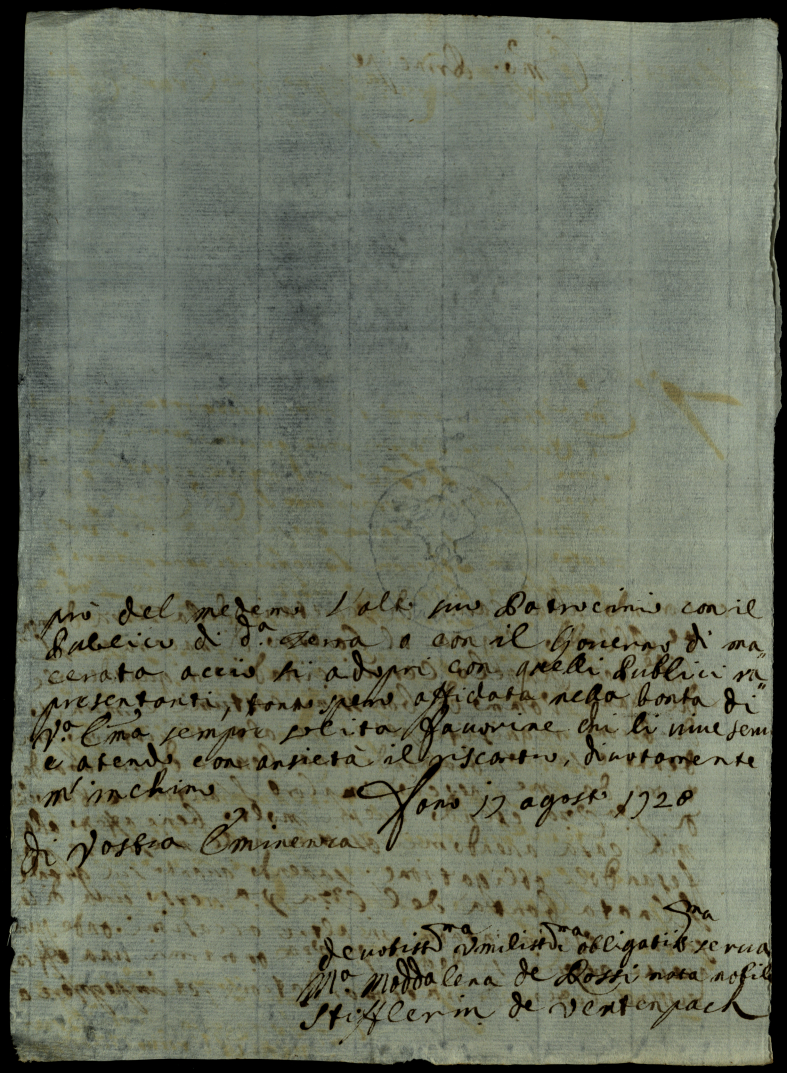 prò del medemo l'alto suo Patrocinio con il
Publico di d.ª Terra o con il Governo di ma
cerata acciò si adopri con quelli Publici ra"
presentanti, tanto spero affidata nella bontà di"
V.ª Em.ª sempre solita favorire chi li vive serv
e atendo con ansietà il riscontro, divotamente
m' inchino
Fano 17 agosto 1728
Di Vostra Eminenza
devotiss.ma umiliss.ma obligatis.ma serva
M.ª Maddalena de Rossi nata nobile
Stifflerin de Vertenpach